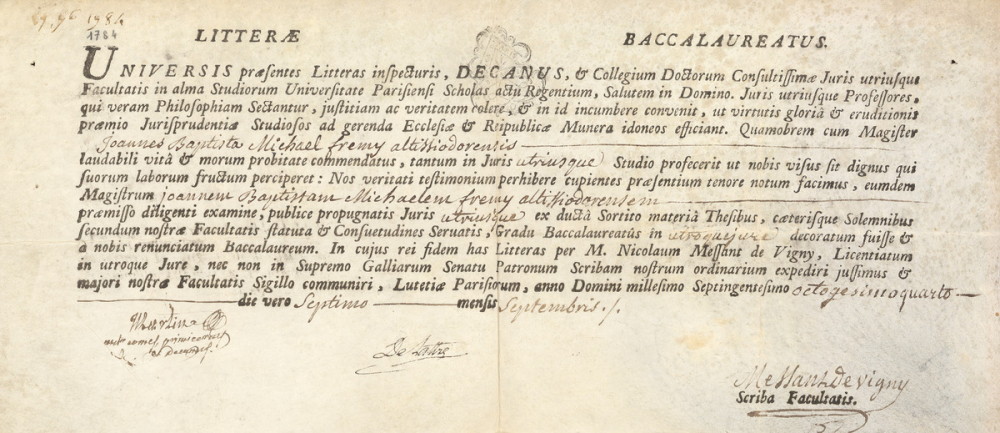 1784
1784
LITTERÆ BACCALAUREATUS.
UNIVERSIS præsentes Litteras inspecturis, DECANUS, & Collegium Doctorum Consultissimæ Juris utriusque
Facultatis in alma Studiorum Universitate Parisiensi Scholas actu Regentium, Salutem in Domino. Juris utriusque Professores,
qui veram Philosophiam Sectantur, justitiam ac veritatem colere, & in id incumbere convenit, ut virtutis gloriâ & eruditionis
præmio Jurisprudentiæ Studiosos ad gerenda Ecclesiæ & Reipublicæ Munera idoneos efficiant. Quamobrem cum Magister
Joannes Baptista Michael fremy altissiodorensis
laudabili vitâ & morum probitate commendatus, tantum in Juris utriusque Studio profecerit ut nobis visus sit dignus qui
suorum laborum fructum perciperet : Nos veritati testimonium perhibere cupientes præsentium tenore notum facimus, eumdem
Magistrum joannem Baptistam Michaelem fremy altissiodorensem
præmisso diligenti examine, publice propugnatis Juris utriusque ex ductâ Sortito materiâ Thesibus, cæterisque Solemnibus
secundum nostræ Facultatis statuta & Consuetudines Servatis, Gradu Baccalaureatûs in utroque jure decoratum fuisse &
a nobis renunciatum Baccalaureum. In cujus rei fidem has Litteras per M. Nicolaum Messant de Vigny, Licentiatum
in utroque Jure, nec non in Supremo Galliarum Senatu Patronum Scribam nostrum ordinarium expediri jussimus &
majori nostræ Facultatis Sigillo communiri, Lutetiæ Parisiorum, anno Domini millesimo Septingentesimo octogesimo quarto
die vero Septimo mensis Septembris ./.
Martin
De Lattre
Messant de vigny
Scriba Facultatis.